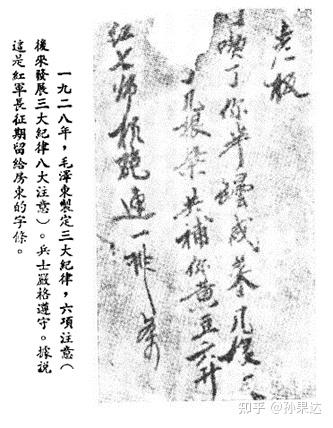 老板
喫了你半罈咸菜几
几根柴共補你黄豆六升
红七师机炮连一排条
一九二八年，毛澤東製定三大紀律，六項注意（
後來發展三大紀律八大注意）。兵士嚴格遵守。據説
這是紅軍長征期留給房東的字條。
知乎 @孙果达